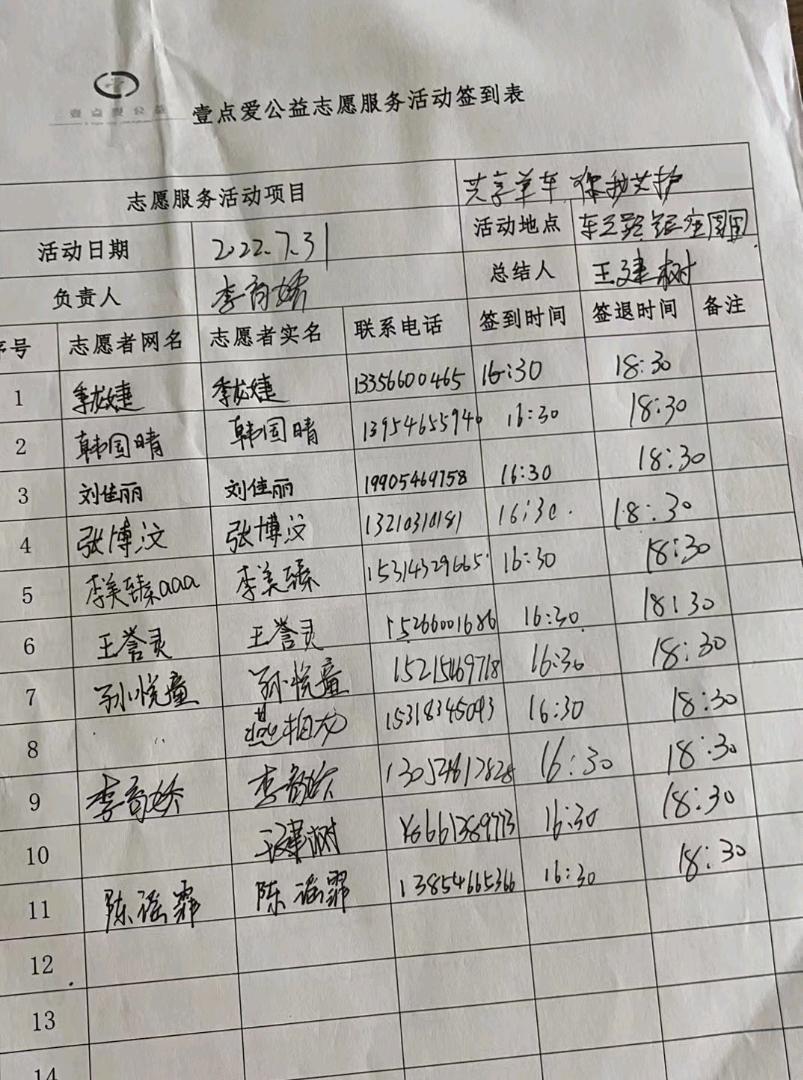 壹点爱公益志愿服务活动签到表
志愿服务活动项目 共享单车 你我共护
活动日期 2022.7.31 活动地点
负责人 李育娇 总结人 王建树
序号 志愿者网名 志愿者实名 联系电话 签到时间 签退时间 备注
1 季龙婕 季龙婕 13356600465 16:30 18:30
2 韩国晴 韩国晴 13954655946 16:30 18:30
3 刘佳丽 刘佳丽 19905469758 16:30 18:30
4 张博汶 张博汶 13210310181 16:30. 18:30
5 李美臻aaa 李美臻 15314329665 16:30 18:30
6 王誉灵 王誉灵 15266001686 16:30 18:30
7 孙悦童 孙悦童 15215469718 16:30 18:30
8 15318345093 16:30 18:30
9 李育娇 李育娇 16:30 18:30
10 王建树 16:30 18:30
11 陈谣霏 陈谣霏 13854665366 16:30 18:30
12
13
14